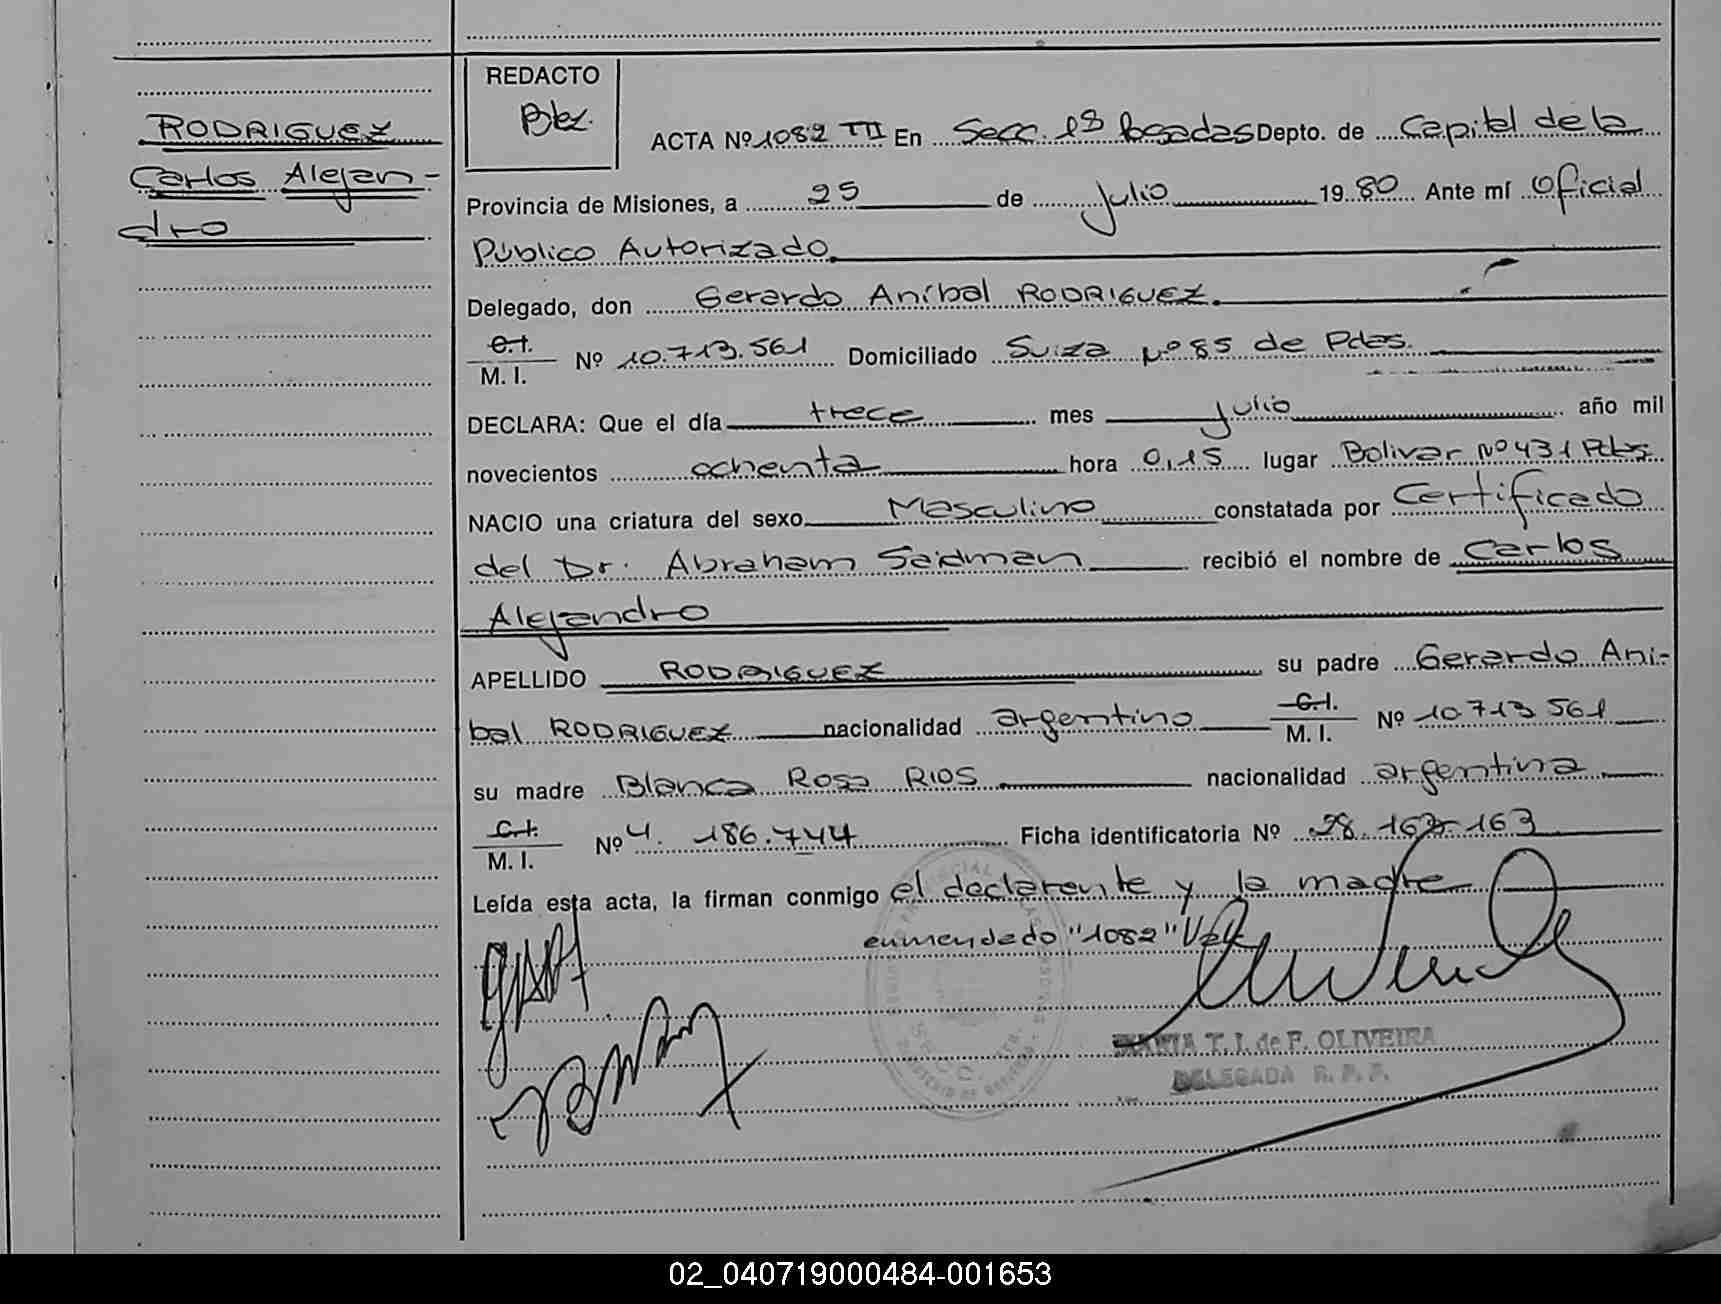 RODRIGUEZ
Carlos Alejan-
dro
REDACTO
ACTA Nº 1082 TII En Secc. 1ª Posadas Depto. de Capital de la
Provincia de Misiones, a 25 de julio 1980 Ante mí Oficial
Público Autorizado.
Delegado, don Gerardo Aníbal RODRIGUEZ.
C.I.
M. I. Nº 10.713.561 Domiciliado Suiza Nº 85 de Pdas.
DECLARA: Que el día trece mes julio año mil
novecientos ochenta hora 0,15 lugar Bolivar Nº 431 Pdas
NACIO una criatura del sexo Masculino constatada por Certificado
del Dr. Abraham Saidman recibió el nombre de Carlos
Alejandro
APELLIDO RODRIGUEZ su padre Gerardo Ani-
bal RODRIGUEZ nacionalidad argentino C.I.
M. I. Nº 10.713.561
su madre Blanca Rosa RIOS nacionalidad argentina
C.I.
M. I. Nº 4.186.744 Ficha identificatoria Nº 28.163.163
Leída esta acta, la firman conmigo el declarante y la madre
enmendado "1082" Vale
MARIA T. I. de F. OLIVEIRA
DELEGADA R. P. P.
02_040719000484-001653